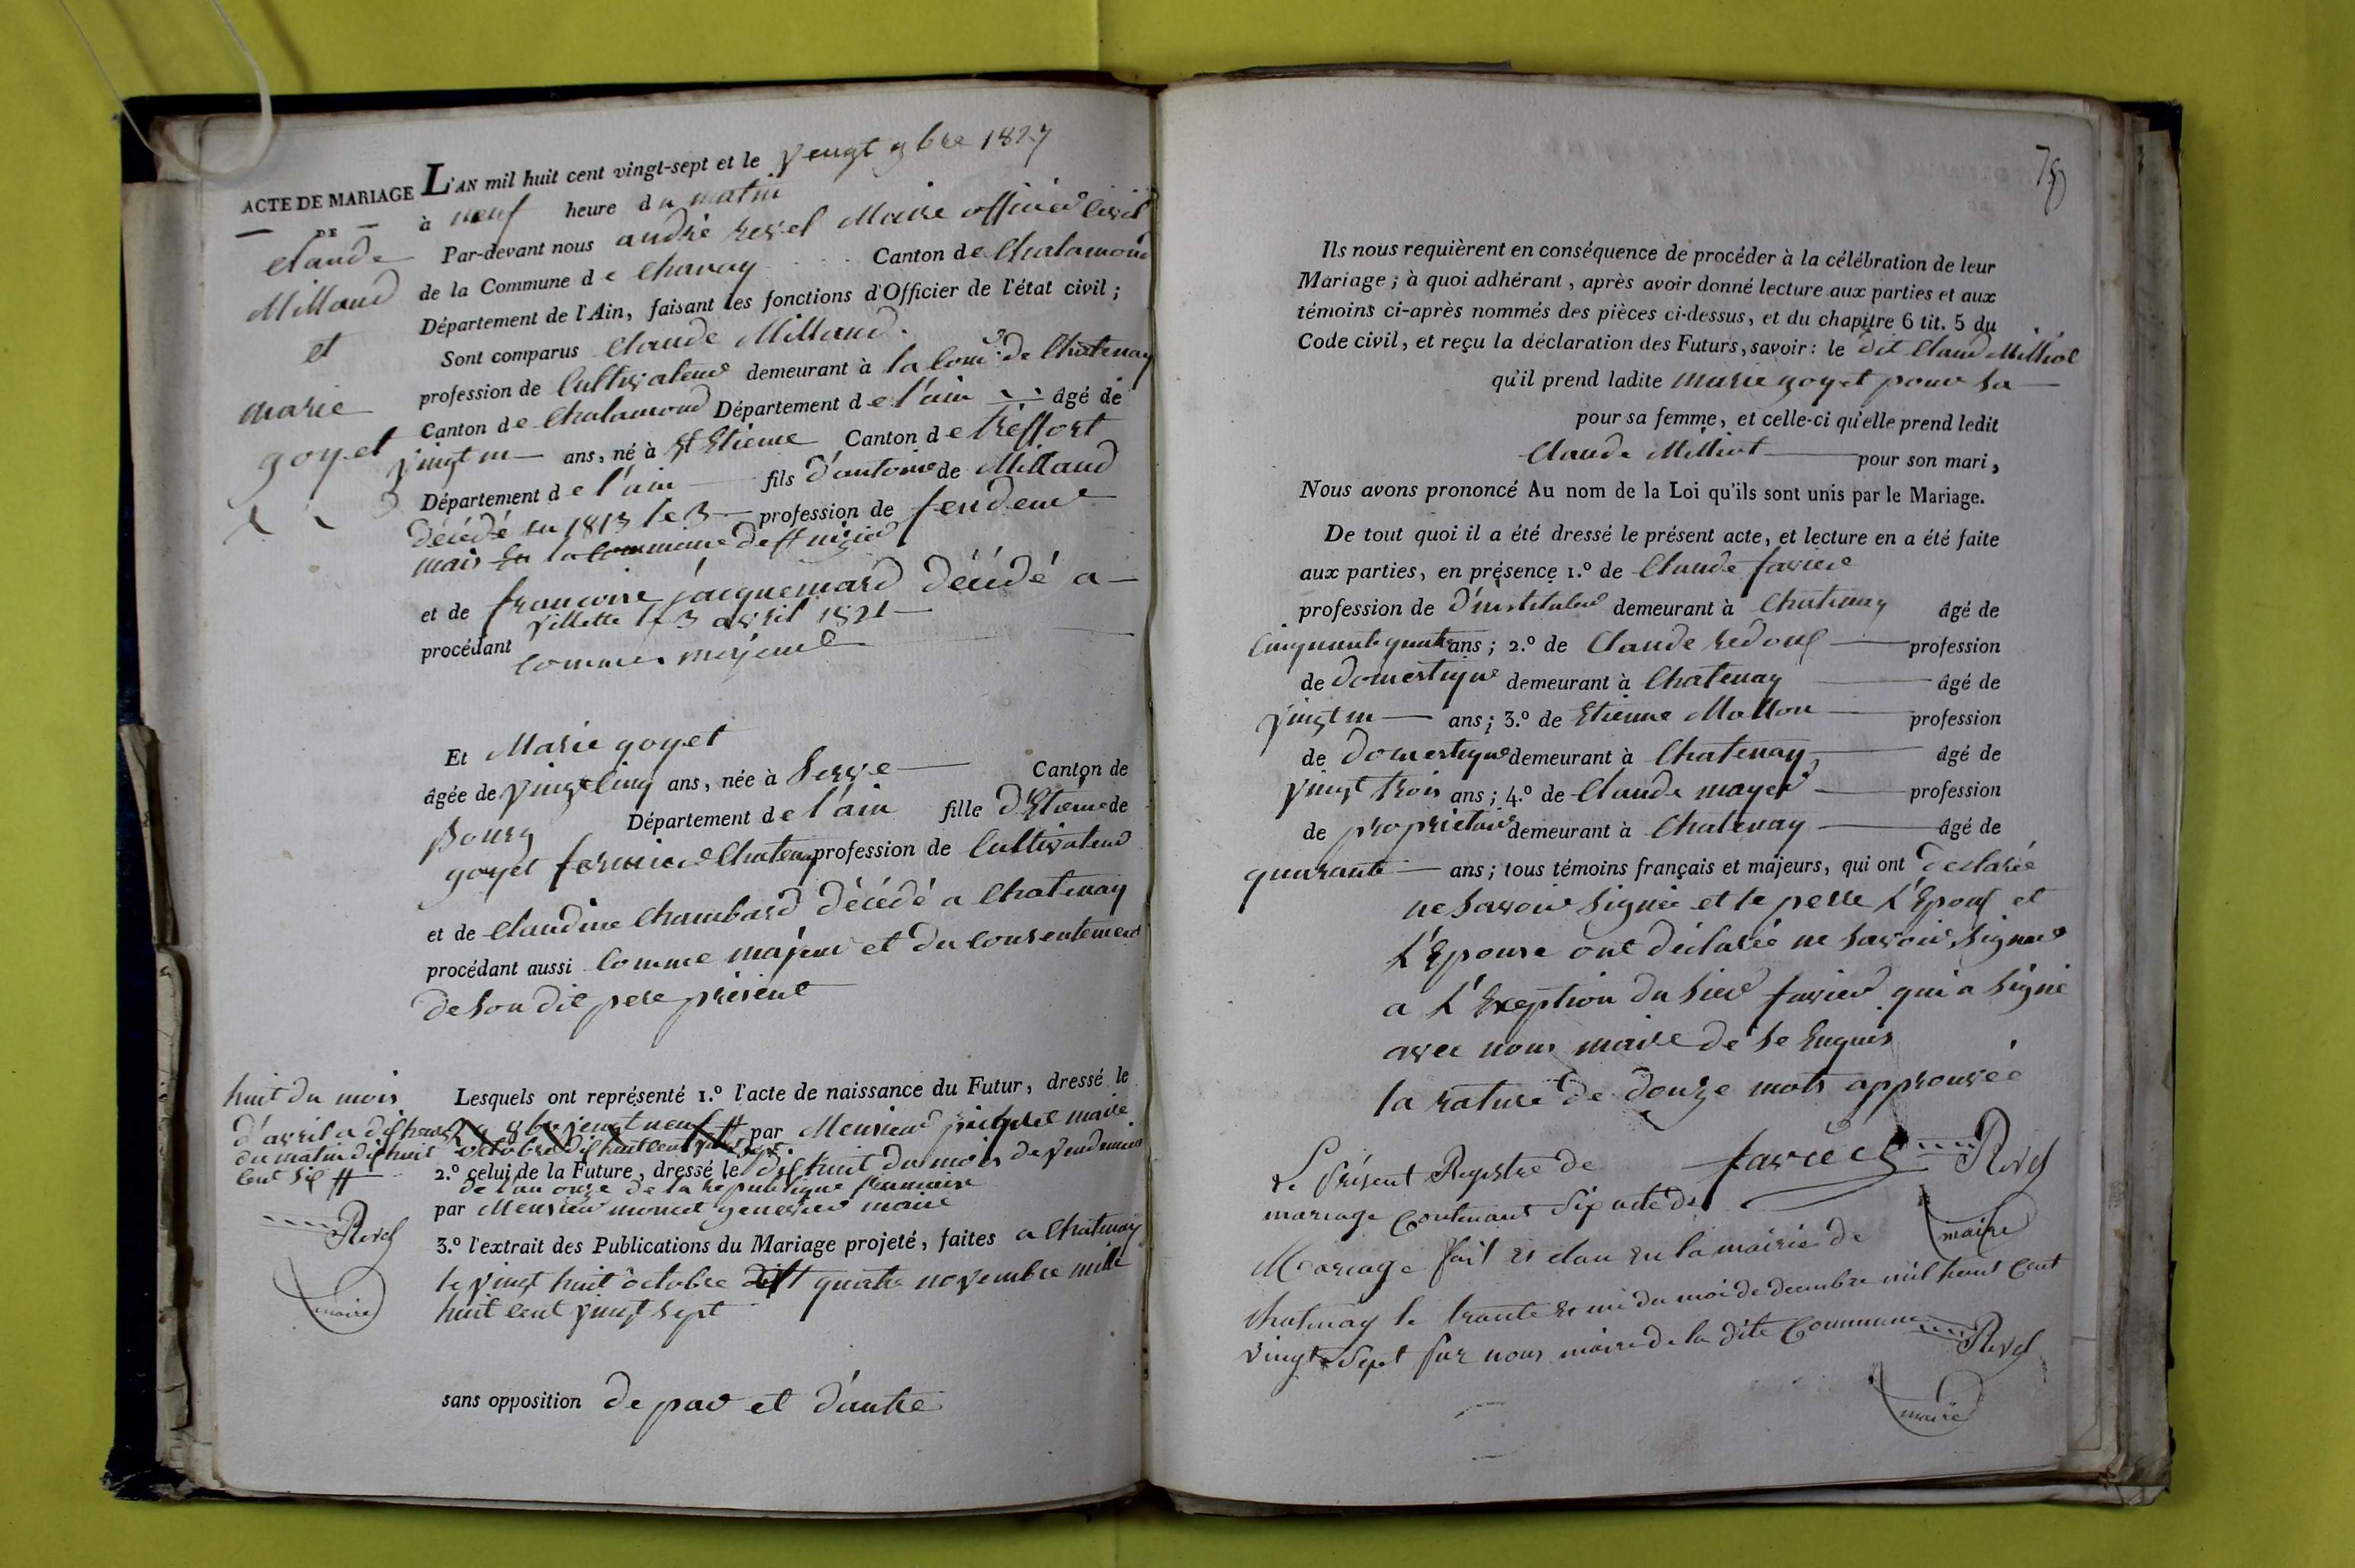 ACTE DE MARIAGE
DE
Claude
Millaud
et
marie
goyet
L'AN mil huit cent vingt-sept et le vengt 9bre 1827
à neuf heure du matin
Par-devant nous andré revel Maire officier Civil
de la Commune de Chanay Canton de Chalamond
Département de l'Ain, faisant les fonctions d'Officier de l'état civil ;
Sont comparus Claude Millaud
profession de Cultivateur demeurant à la Com.ne de Chatenay
Canton de Chalamond Département de l'ain âgé de
vingt un ans, né à St Etienne Canton de treffort
Département de l'ain fils d'antoine de Millaud
décédé en 1813 le 3 profession de fendeur
mais la commune de
et de francoise jacquemard décédé a
villette le 3 avril 1821
procédant comme majeur
Et Marie goyet
âgée de vingt cinq ans, née à Serve Canton de
Bourg Département de l'ain fille d'Etienne de
goyet fermier Chatenay profession de Cultivateur
et de Claudine Chambard décédé a Chatenay
procédant aussi Comme majeur et du Consentement
de Son dit pere présent
huit du mois
d'avril a dix heures
du matin dix huit
Cent six #
Revel
maire
Lesquels ont représenté 1.º l'acte de naissance du Futur, dressé le
par Mensieur maire
2.º celui de la Future, dressé le dix huit du mois de vendemiere
de l'an onze de la republique francaise
par Mensieur moncet genevier maire
3.º l'extrait des Publications du Mariage projeté, faites a Chatenay
le vingt huit octobre quatre novembre mille
huit cent vingt sept
sans opposition de par et d'autre
Ils nous requièrent en conséquence de procéder à la célébration de leur
Mariage ; à quoi adhérant, après avoir donné lecture aux parties et aux
témoins ci-après nommés des pièces ci-dessus, et du chapitre 6 tit. 5 du
Code civil, et reçu la déclaration des Futurs, savoir : le dit Claud Milliot
qu'il prend ladite marie goyet pour sa
pour sa femme, et celle-ci qu'elle prend ledit
Claude Milliot pour son mari,
Nous avons prononcé Au nom de la Loi qu'ils sont unis par le Mariage.
De tout quoi il a été dressé le présent acte, et lecture en a été faite
aux parties, en présence 1.º de Claude favier
profession de d'instituteur demeurant à Chatenay âgé de
Cinquante quatre ans ; 2.º de Claude redoux profession
de domestique demeurant à Chatenay âgé de
vingt un ans ; 3.º de Etienne Mollon profession
de domestique demeurant à Chatenay âgé de
vingt trois ans ; 4.º de Claude mayet profession
de proprietaire demeurant à Chatenay âgé de
quarante ans ; tous témoins français et majeurs, qui ont déclarée
ne Savoir Signée et le pere L'Epoux et
L'Epouse ont déclarée ne Savoir Signer
a L'Exeption du Sieur favier qui a Signé
avec nous maire de se Enquis
la rature de douze mots approuvée
favier Revel
maire
Le Présent Registre de
mariage Contenant Six acte de
Mariage fait et clau en la mairie de
Chatenay le trante et un du moi de decembre mil huit Cent
vingt Sept par nous maire de la dite Commune Revel
maire